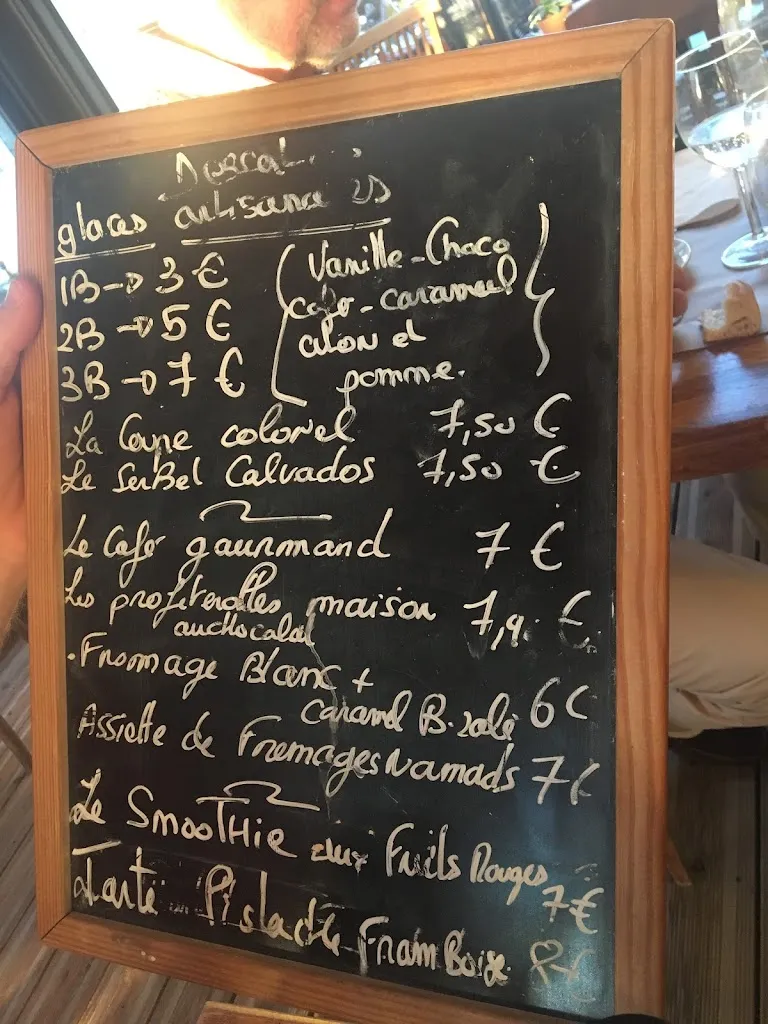 glaces artisanales
1B → 3 €
2B → 5 €
3B → 7 €
Vanille - Choco
café - caramel
citron et
pomme.
La Coupe colonel 7,50 €
Le SorBet Calvados 7,50 €
Le Café gourmand 7 €
Les profiterolles maison 7,9 €
au chocolat
. Fromage Blanc +
caramel B. salé 6 €
Assiette de Fromages Normands 7 €
Le SmooTHie aux Fruits Rouges
7 €
Tarte Pistache FramBoise 8 €